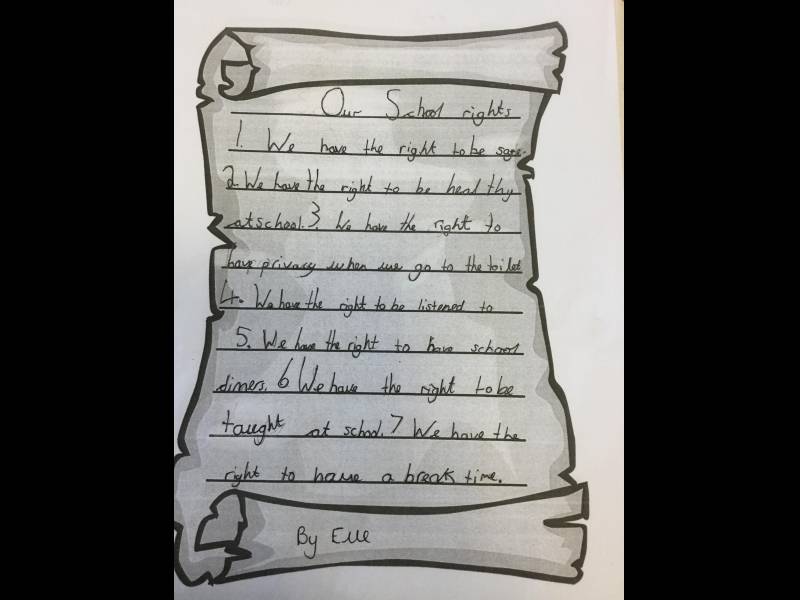 Our School rights
1. We have the right to be safe.
2. We have the right to be healthy
at school. 3. We have the right to
have privacy when we go to the toilet
4. We have the right to be listened to
5. We have the right to have school
diners. 6 We have the right to be
taught at school. 7 We have the
right to have a break time.
By Elle